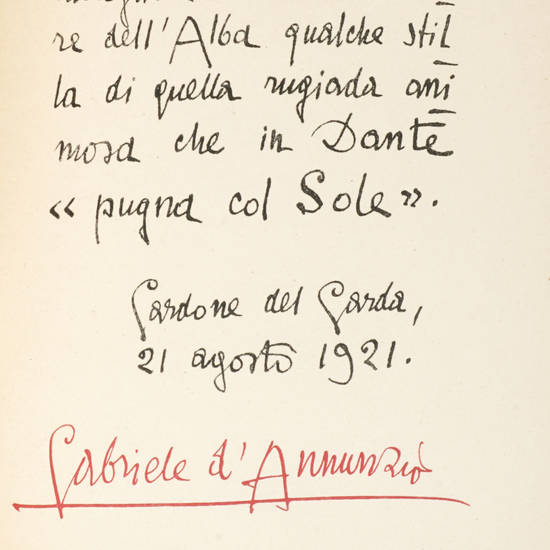 re dell'Alba qualche stil
la di quella rugiada ani
mosa che in Dante
« pugna col Sole ».
Gardone del Garda,
21 agosto 1921.
Gabriele d'Annunzio